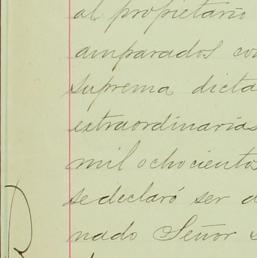 al propietario
amparados con
suprema dicta
extraordinarias
mil ochocientos
se declaró ser a
nado Señor